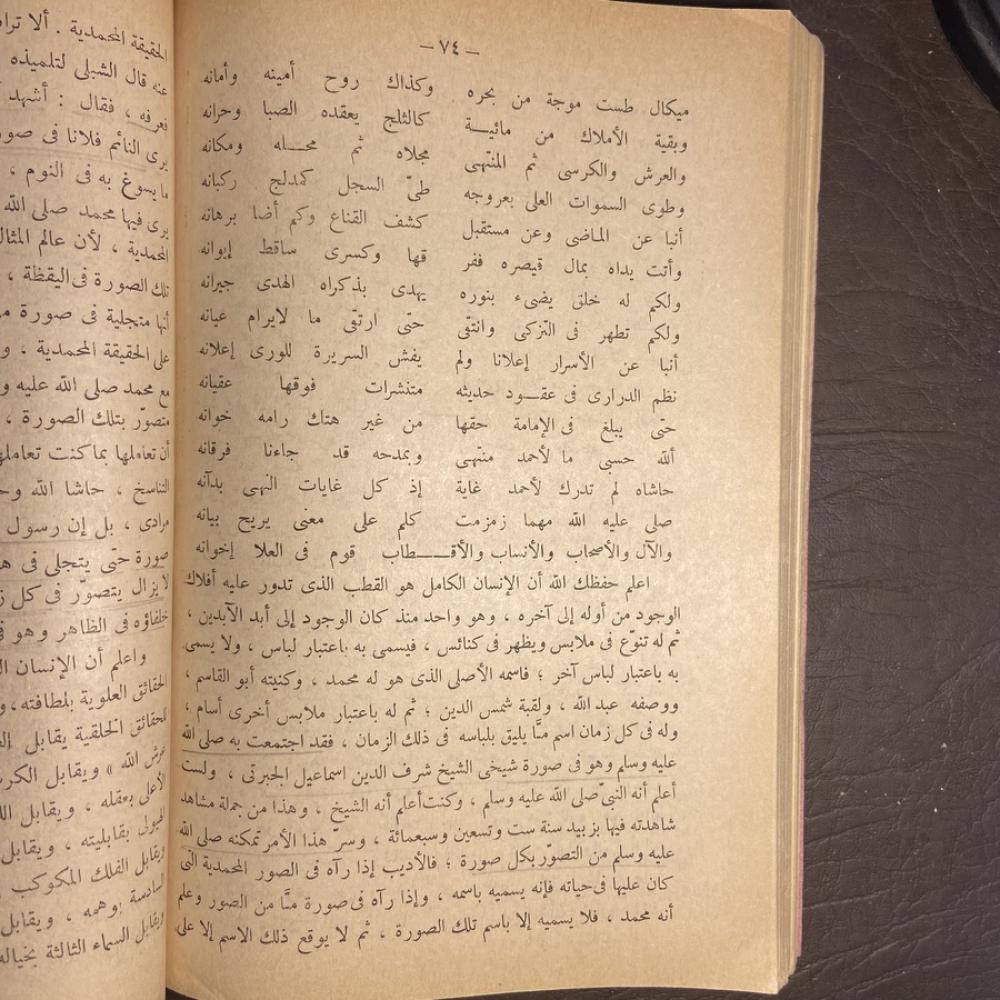 — ٧٤ —
ميكال طست موجة من بحره وكذاك روح أمينه وأمانه
وبقية الأملاك من مائيـــة كالثلج يعقده الصبا وحرانه
والعرش والكرسى ثم المنتهى مجلاه ثم محـــله ومكانه
وطوى السموات العلى بعروجه طىّ السجل كمدلج ركبانه
أنبا عن الماضى وعن مستقبل كشف القناع وكم أضا برهانه
وأتت يداه بمال قيصره ففر قها وكسرى ساقط إيوانه
ولكم له خلق يضىء بنوره يهدى بذكراه الهدى جيرانه
ولكم تطهر فى التزكى وانتقى حتى ارتقى ما لايرام عيانه
أنبا عن الأسرار إعلانا ولم يفش السريرة للورى إعلانه
نظم الدرارى فى عقــود حديثه متنشرات فوقها عقيانه
حتى يبلغ فى الإمامة حقها من غير هتاك رامه خوانه
ألله حسبى ما لأحمد منتهى وبمدحه قد جاءنا فرقانه
حاشاه لم تدرك لأحمد غاية إذ كل غايات النهى بدآنه
صلى عليه الله مهما زمزمت كلم على معنى يريح بيانه
والآل والأصحاب والأنساب والأقـــــطاب قوم فى العلا إخوانه
اعلم حفظك الله أن الإنسان الكامل هو القطب الذى تدور عليه أفلاك
الوجود من أوله إلى آخره ، وهو واحد منذ كان الوجود إلى أبد الآبدين ،
ثم له تنوّع فى ملابس ويظهر فى كنائس ، فيسمى به باعتبار لباس ، ولا يسمى
به باعتبار لباس آخر ؛ فاسمه الأصلى الذى هو له محمد ، وكنيته أبو القاسم ،
ووصفه عبد الله ، ولقبة شمس الدين ؛ ثم له باعتبار ملابس أخرى أسام ،
وله فى كل زمان اسم مّا يليق بلباسه فى ذلك الزمان ، فقد اجتمعت به صلى الله
عليه وسلم وهو فى صورة شيخى الشيخ شرف الدين اسماعيل الجبرتى ، ولست
أعلم أنه النبىّ صلى الله عليه وسلم ، وكنت أعلم أنه الشيخ ، وهذا من جملة مشاهد
شاهدته فيها بزبيد سنة ست وتسعين وسبعمائة ، وسرّ هذا الأمر تمكنه صلى الله
عليه وسلم من التصوّر بكل صورة ؛ فالأديب إذا رآه فى الصور المحمدية التى
كان عليها فى حياته فإنه يسميه باسمه ، وإذا رآه فى صورة مّا من الصور وعلم
أنه محمد ، فلا يسميه إلا باسم تلك الصورة ، ثم لا يوقع ذلك الاسم إلا على
الحقيقة المحمدية . ألا
عنه قال الشبلى لتلميذه
فعرفه ، فقال : أشهد
يرى النائم فلانا فى
ما يسوغ به فى النوم ،
يرى فيها محمد صلى الله
المحمدية ، لأن عالم المثال
تلك الصورة فى اليقظة ،
أنها متجلية فى صورة
على الحقيقة المحمدية ،
مع محمد صلى الله عليه
متصوّر بتلك الصورة ،
أن تعاملها بما كنت
التناسخ ، حاشا الله
مرادى ، بل إن رسول
صورة حتى يتجلى فى
لا يزال يتصوّر فى كل
خلفاؤه فى الظاهر وهو
واعلم أن الإنسان
الحقائق العلوية بلطافته،
للحقائق الخلقية يقابل
عرش الله » ويقابل
الأعلى بعقله ، ويقابل
الهيولى بقابليته ، ويقابل
ويقابل الفلك المكوكب
السادسة بوهمه ، ويقابل
ويقابل السماء الثالثة بخياله